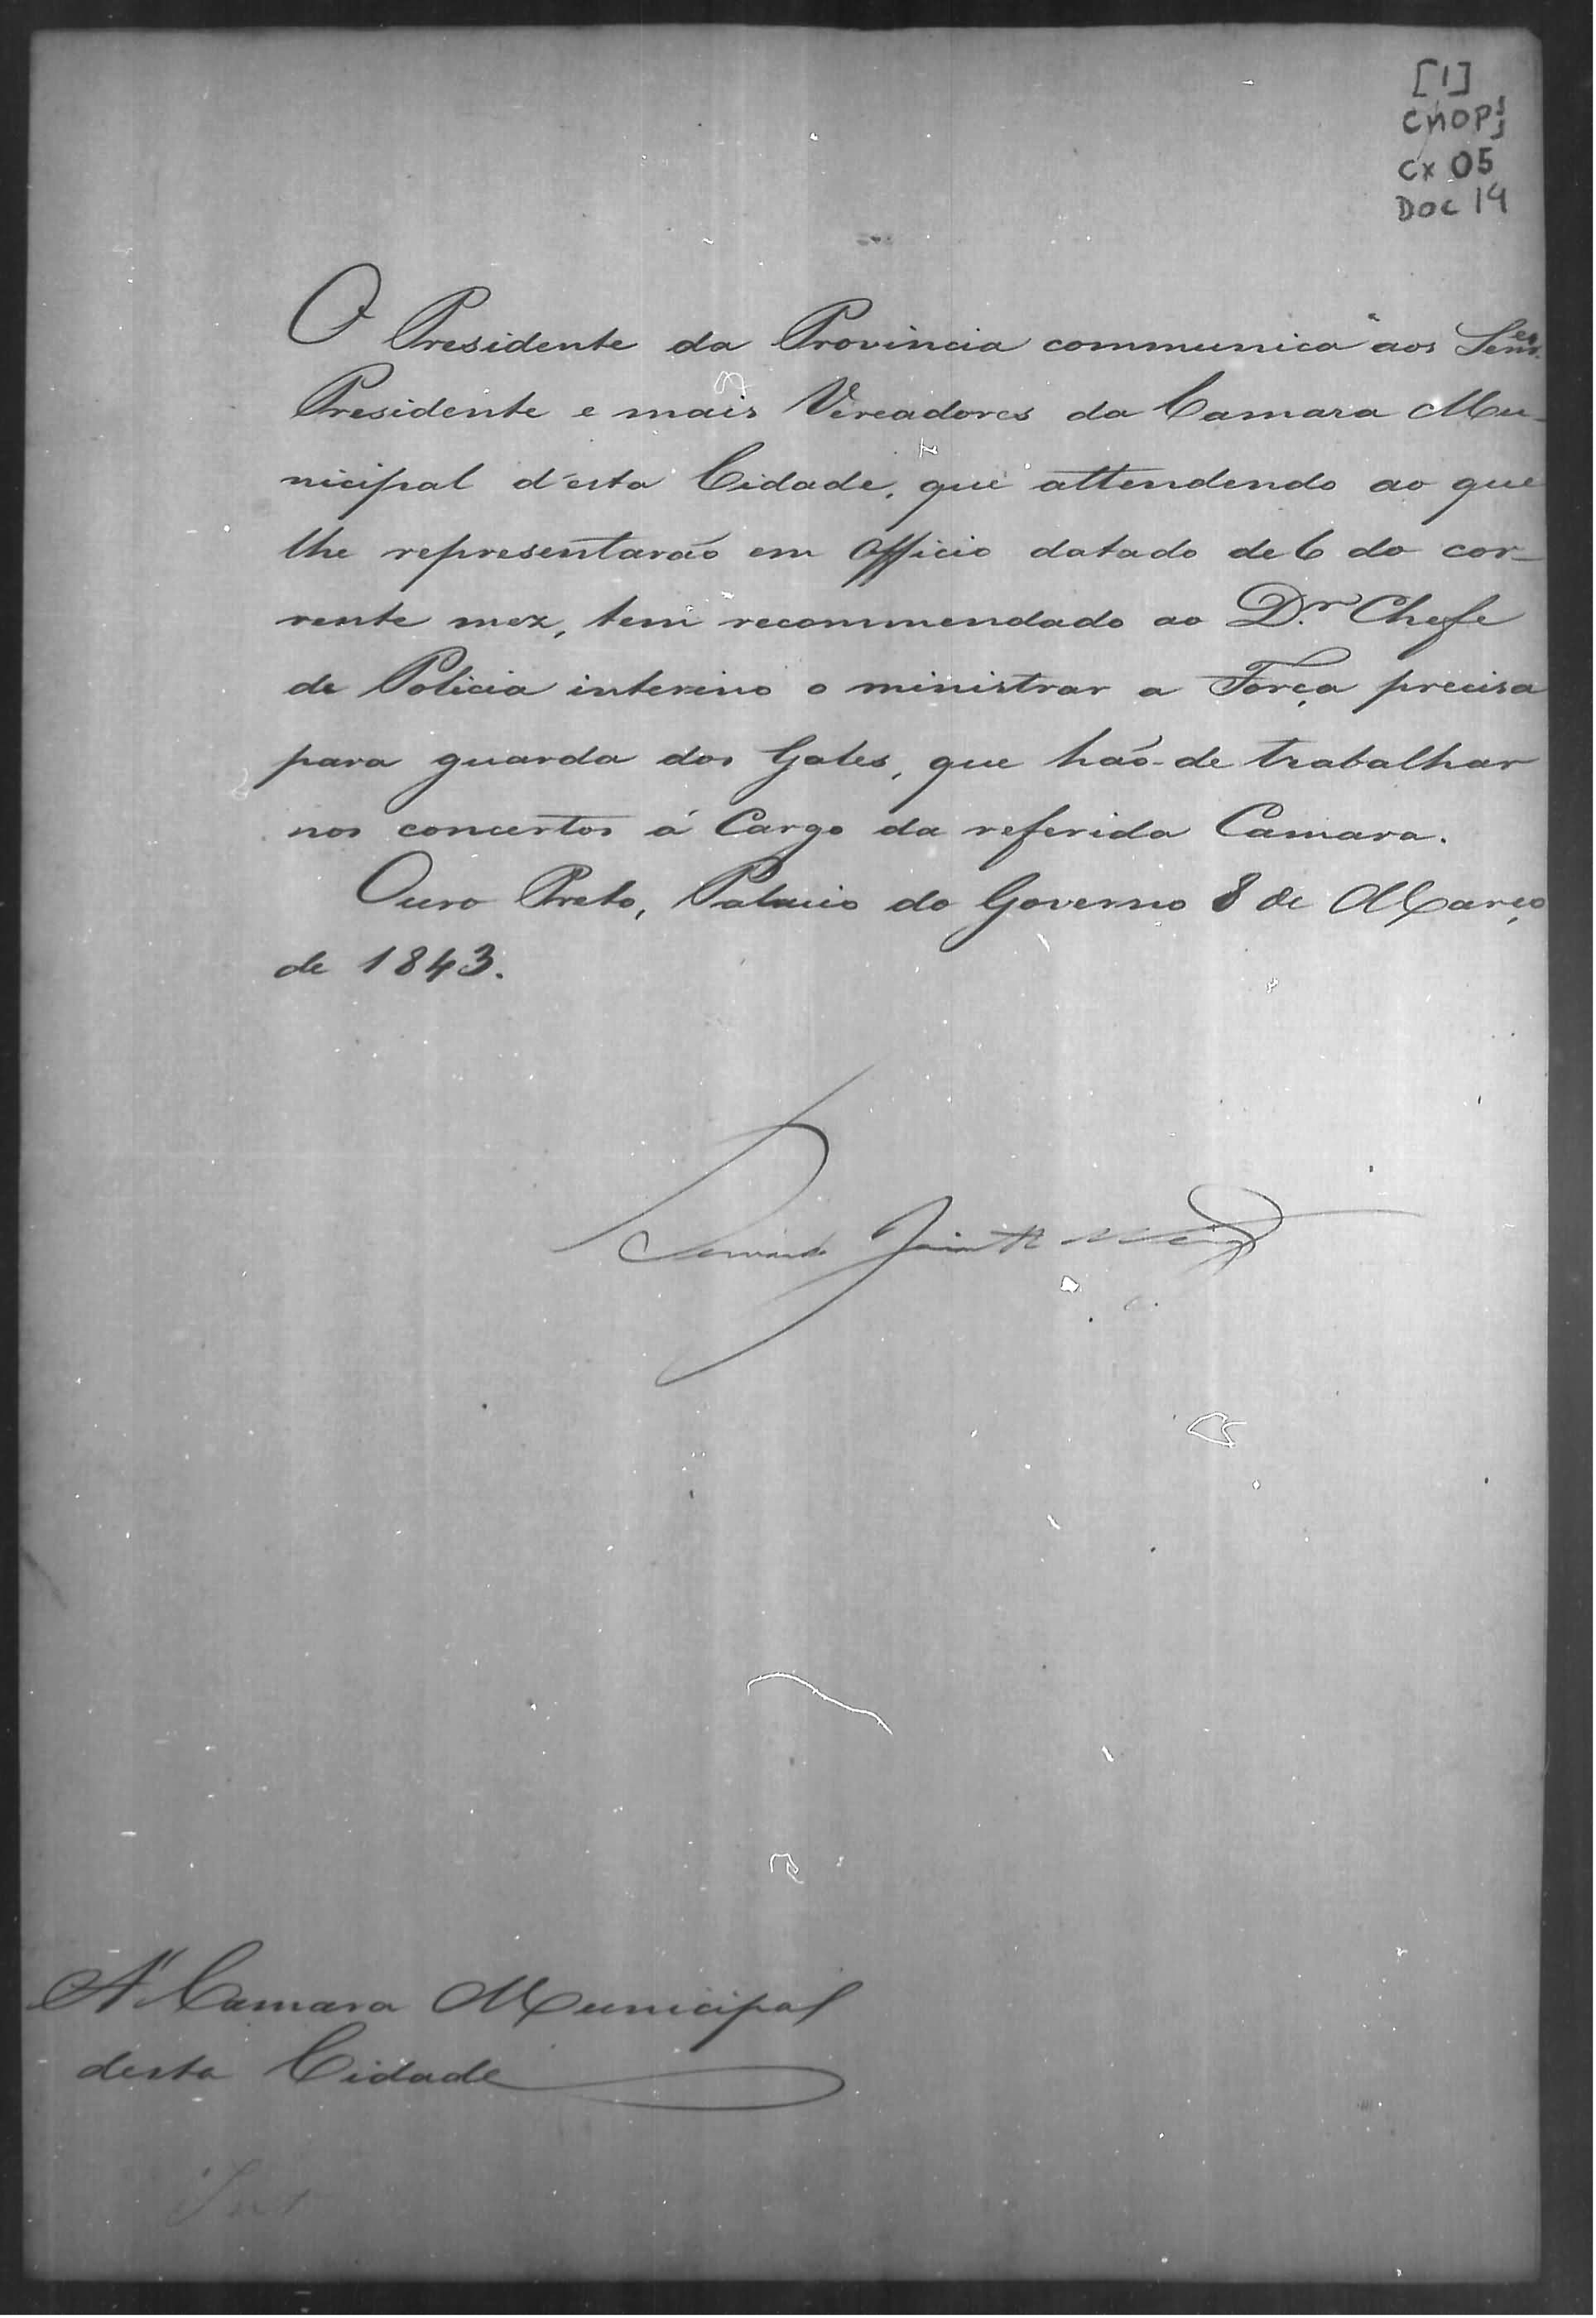 [1]
CMOP
Cx 05
DOC 14
O Presidente da Provincia communica aos Senr.es
Presidente e mais Vereadores da Camara Mu-
nicipal d'esta Cidade, que attendendo ao que
lhe representarão em Officio datado de 6 do cor-
rente mez, tem recommendado ao D.r Chefe
de Policia interino o ministrar a Força precisa
para guarda dos Galés, que hão-de trabalhar
nos concertos á Cargo da referida Camara.
Ouro Preto, Palacio do Governo 8 de Março
de 1843.
A' Camara Municipal
desta Cidade